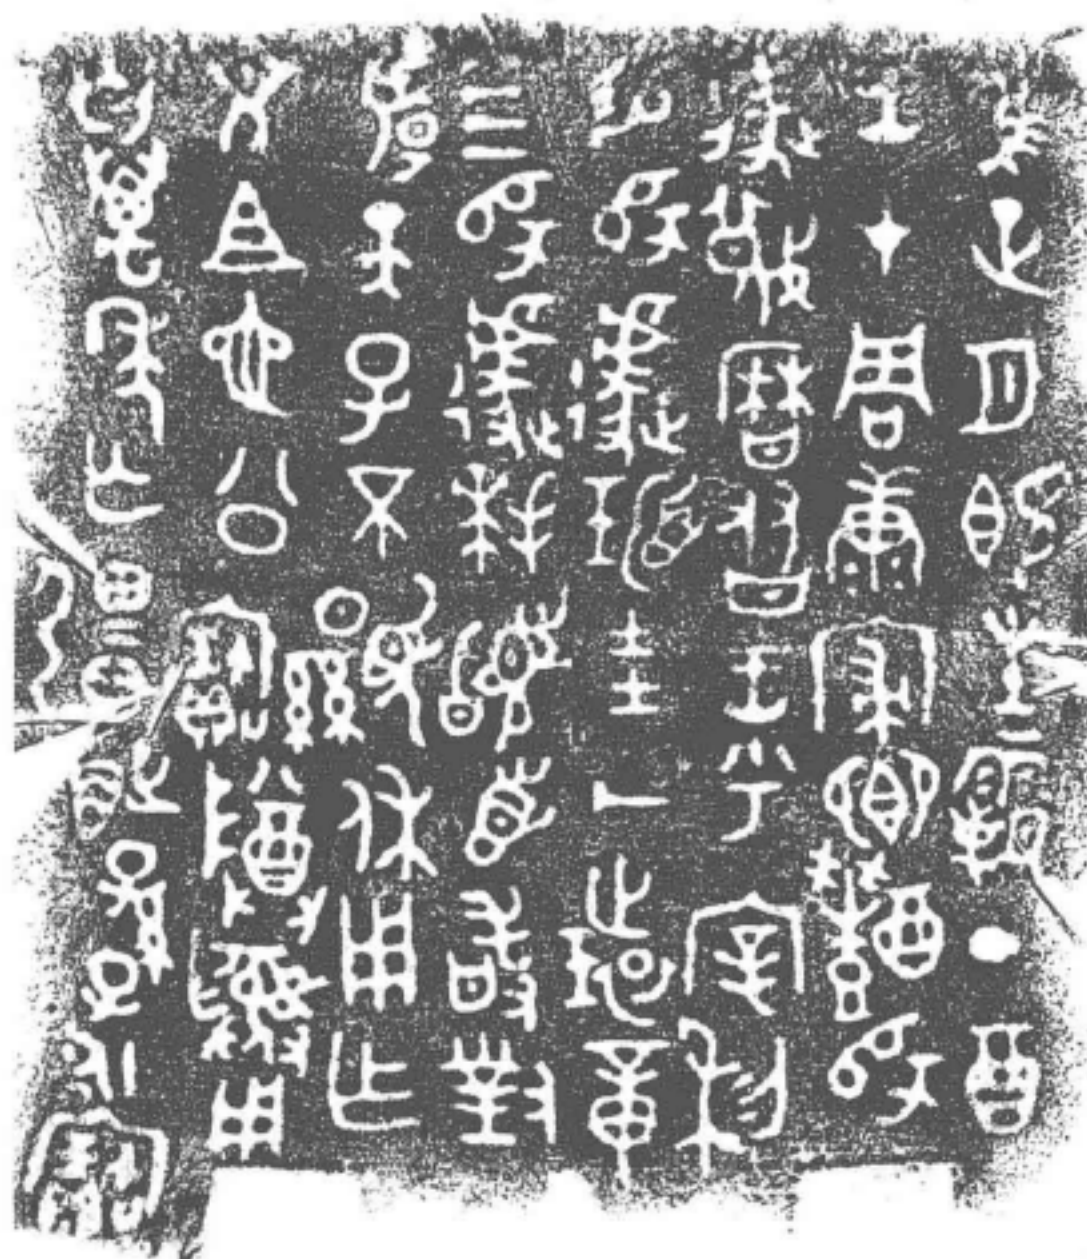 隹正月既生霸丁酉
王才周康寢鄉醴師
遽蔑曆友王乎宰利
易師遽瑁圭一環章
四師遽拜稽首敢對
揚天子不顯休用乍
文且也公寶尊彝用
匄萬年亡彊百世孫子永寶